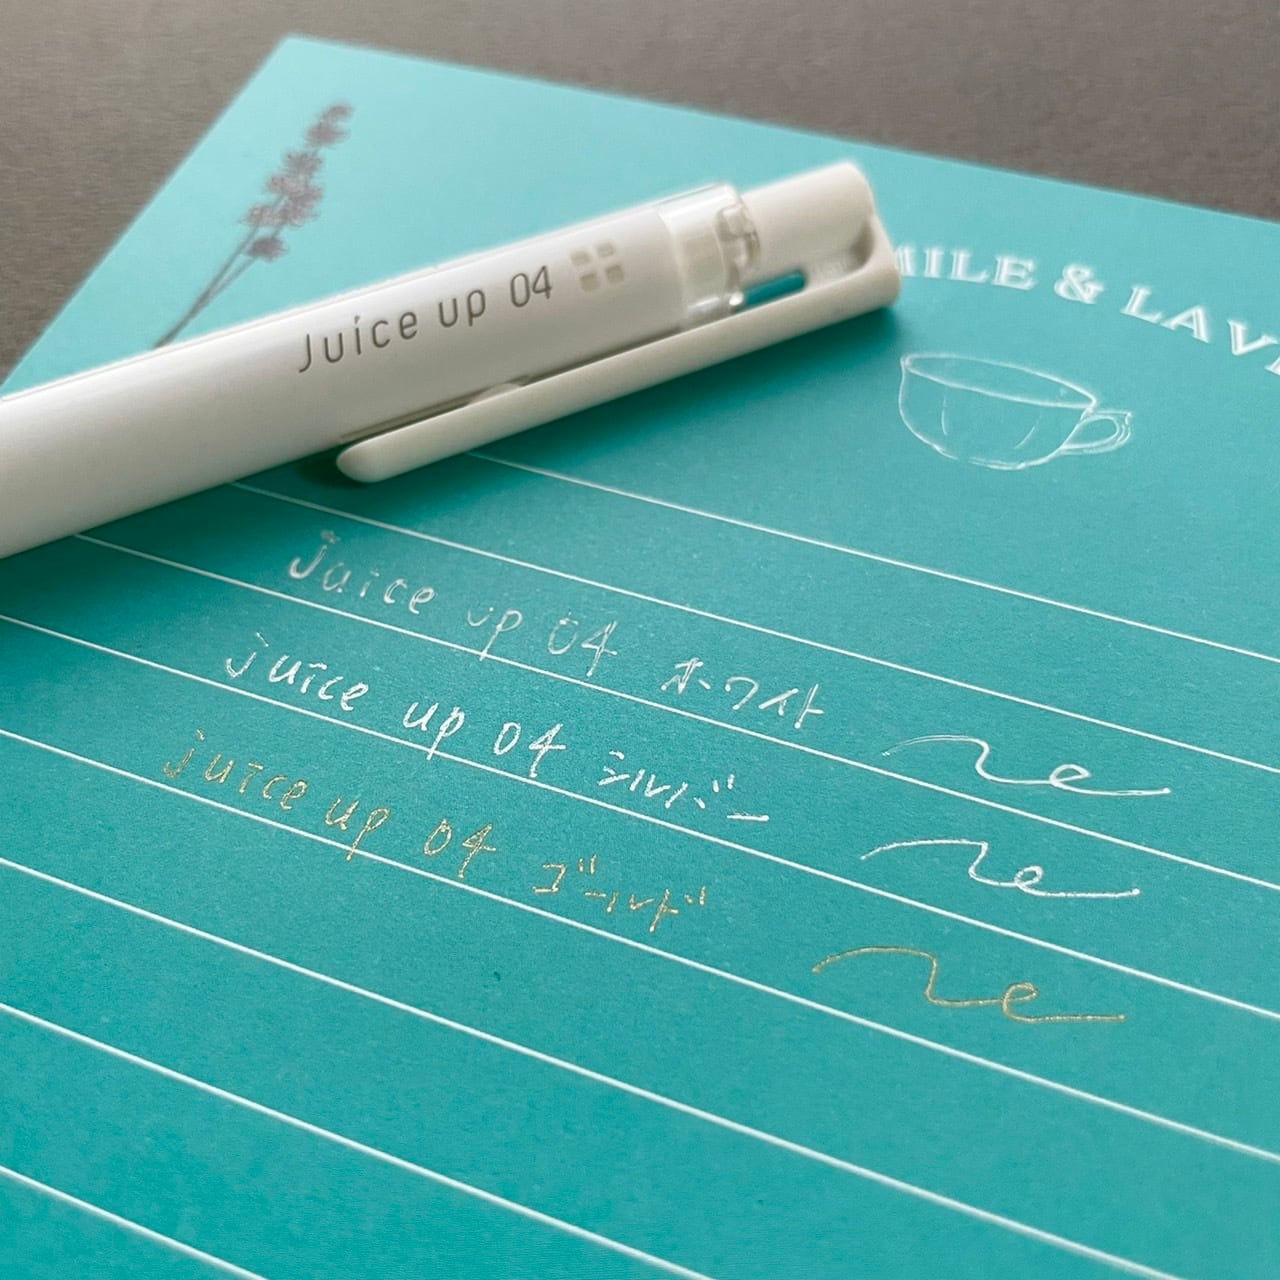 Juice up 04
MILE & LAV
juice up 04 ホワイト
juice up 04 シルバー
juice up 04 ゴールド